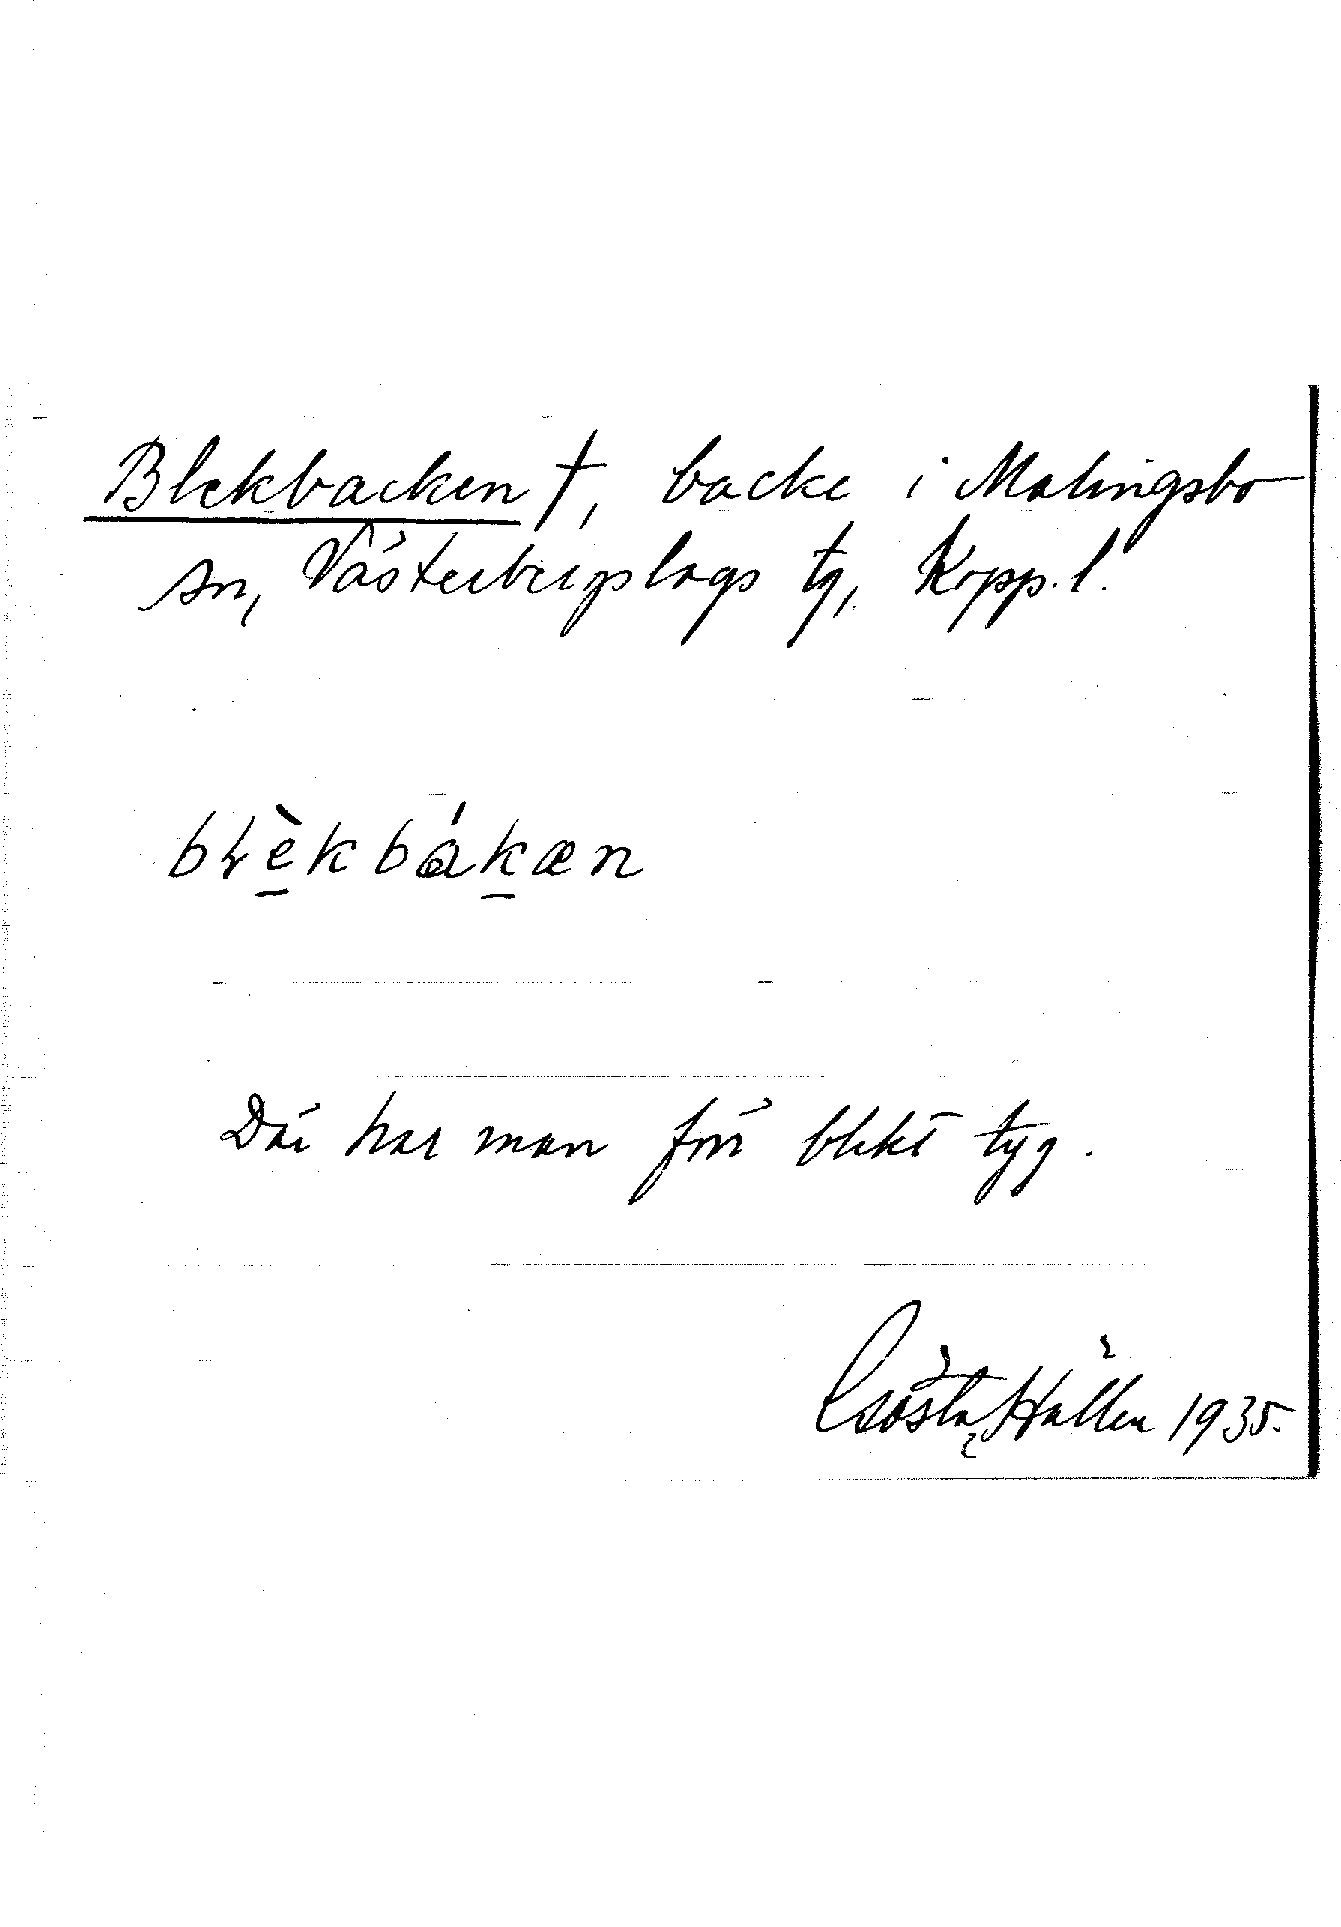 Blekbacken †, backe i Malingsbo
sn, Västerbergslags tg, Kopp. l.
blèkbákæn
Där har man förr blekt tyg.
Gösta Hallén 1935.